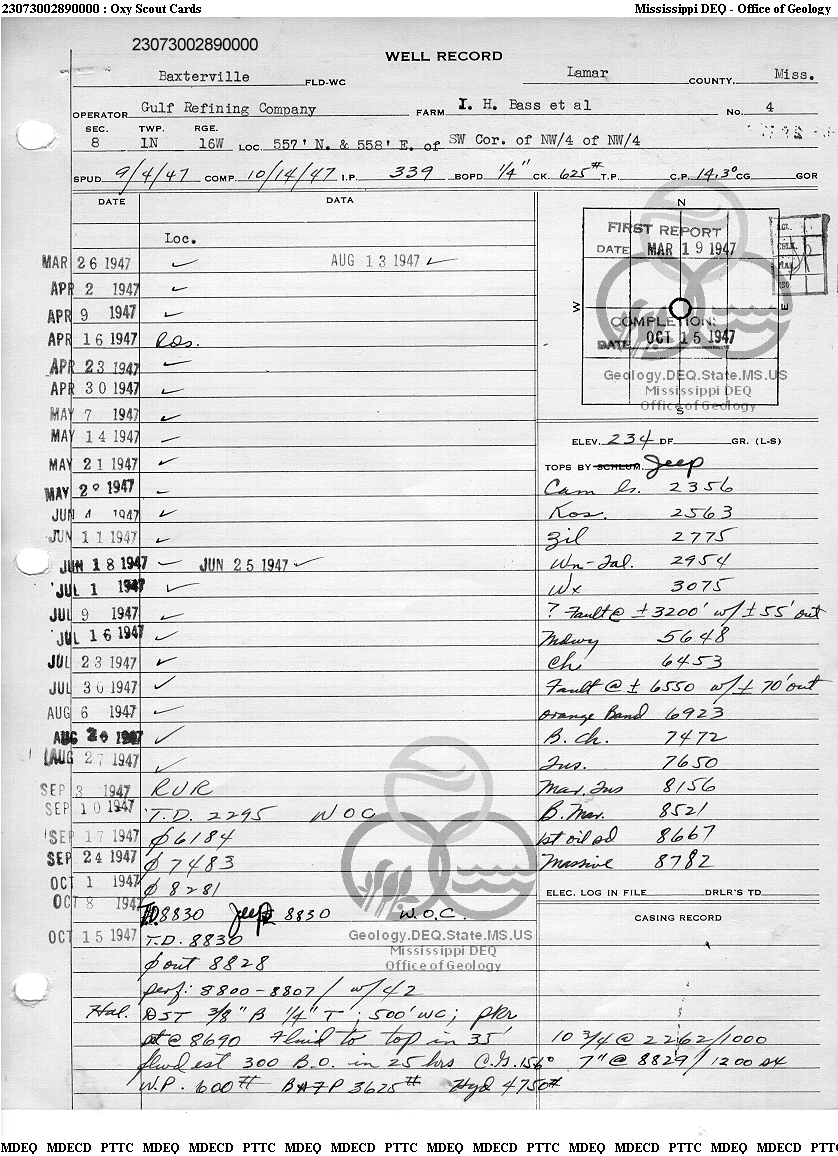 23073002890000 : Oxy Scout Cards Mississippi DEQ - Office of Geology
23073002890000
WELL RECORD
Baxterville FLD-WC Lamar COUNTY, Miss.
OPERATOR Gulf Refining Company FARM I. H. Bass et al No. 4
SEC. TWP. RGE.
8 1N 16W LOC. 557' N. & 558' E. of SW Cor. of NW/4 of NW/4
SPUD 9/4/47 COMP. 10/14/47 I.P. 339 BOPD 1/4" CK. 625# T.P. C.P. 14.3° CG GOR
DATE DATA
Loc.
MAR 26 1947 ✓ AUG 13 1947 ✓
APR 2 1947 ✓
APR 9 1947 ✓
APR 16 1947 Ros.
APR 23 1947 ✓
APR 30 1947 ✓
MAY 7 1947 ✓
MAY 14 1947 ✓
MAY 21 1947 ✓
MAY 1947 ✓
JUN 4 1947 ✓
JUN 11 1947 ✓
JUN 18 1947 ✓ JUN 25 1947 ✓
JUL 1 1947 ✓
JUL 9 1947 ✓
JUL 16 1947 ✓
JUL 23 1947 ✓
JUL 30 1947 ✓
AUG 6 1947 ✓
AUG 1947 ✓
AUG 27 1947 ✓
SEP 3 1947 RUR
SEP 10 1947 T.D. 2295 WOC
SEP 17 1947 ϕ 6184
SEP 24 1947 ϕ 7483
OCT 1 1947 ϕ 8281
OCT 8 1947 T.D. 8830 Jeep 8830 W.O.C.
OCT 15 1947 T.D. 8830
ϕ out 8828
perf: 8800-8807 / w/ 42
Hal. DST 3/8" B 1/4" T; 500' WC; pkr
@ 8690 Fluid to top in 35'
flwd est 300 B.O. in 25 hrs C.G. 15.6°
W.P. 600# BHFP 3625# Hyd 4750#
N
FIRST REPORT
DATE MAR 19 1947
W E
COMPLETION:
DATE OCT 15 1947
S
Geology.DEQ.State.MS.US
Mississippi DEQ
Office of Geology
ELEV. 234 DF GR. (L-S)
TOPS BY SCHLUM. Jeep
Cam ls. 2356
Kos. 2563
Zil 2775
Wn-Tal. 2954
Wx 3075
? Fault @ ± 3200' w/ ± 55' out
Mdwy 5648
Ch 6453
Fault @ ± 6550 w/ ± 70' out
Orange Band 6923
B. Ch. 7472
Tus. 7650
Mar. Tus 8156
B. Mar. 8521
1st oil sd 8667
Massive 8782
ELEC. LOG IN FILE DRLR'S TD
CASING RECORD
10 3/4 @ 2262/1000
7" @ 8829/1200 sx
Geology.DEQ.State.MS.US
Mississippi DEQ
Office of Geology
MDEQ MDECD PTTC MDEQ MDECD PTTC MDEQ MDECD PTTC MDEQ MDECD PTTC MDEQ MDECD PTTC MDEQ MDECD PTTC